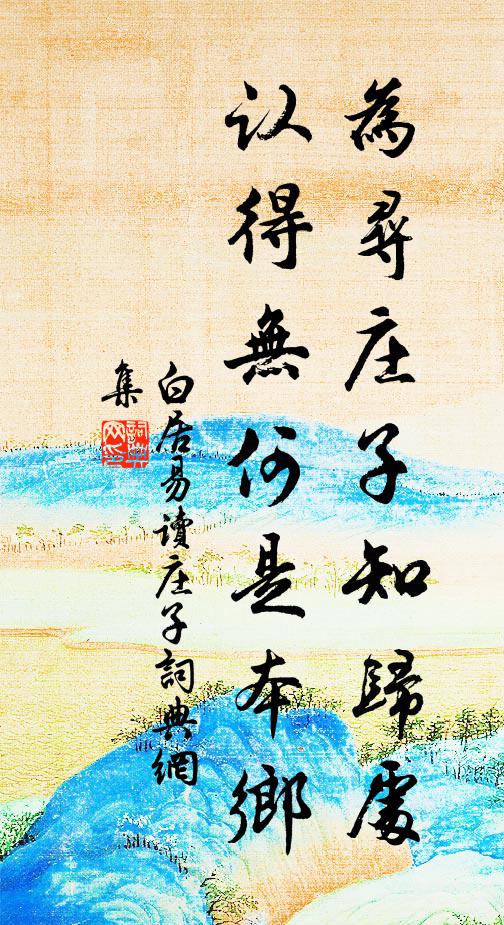 為尋庄子知歸處
认得無何是本鄉
白居易讀庄子詞典網
集